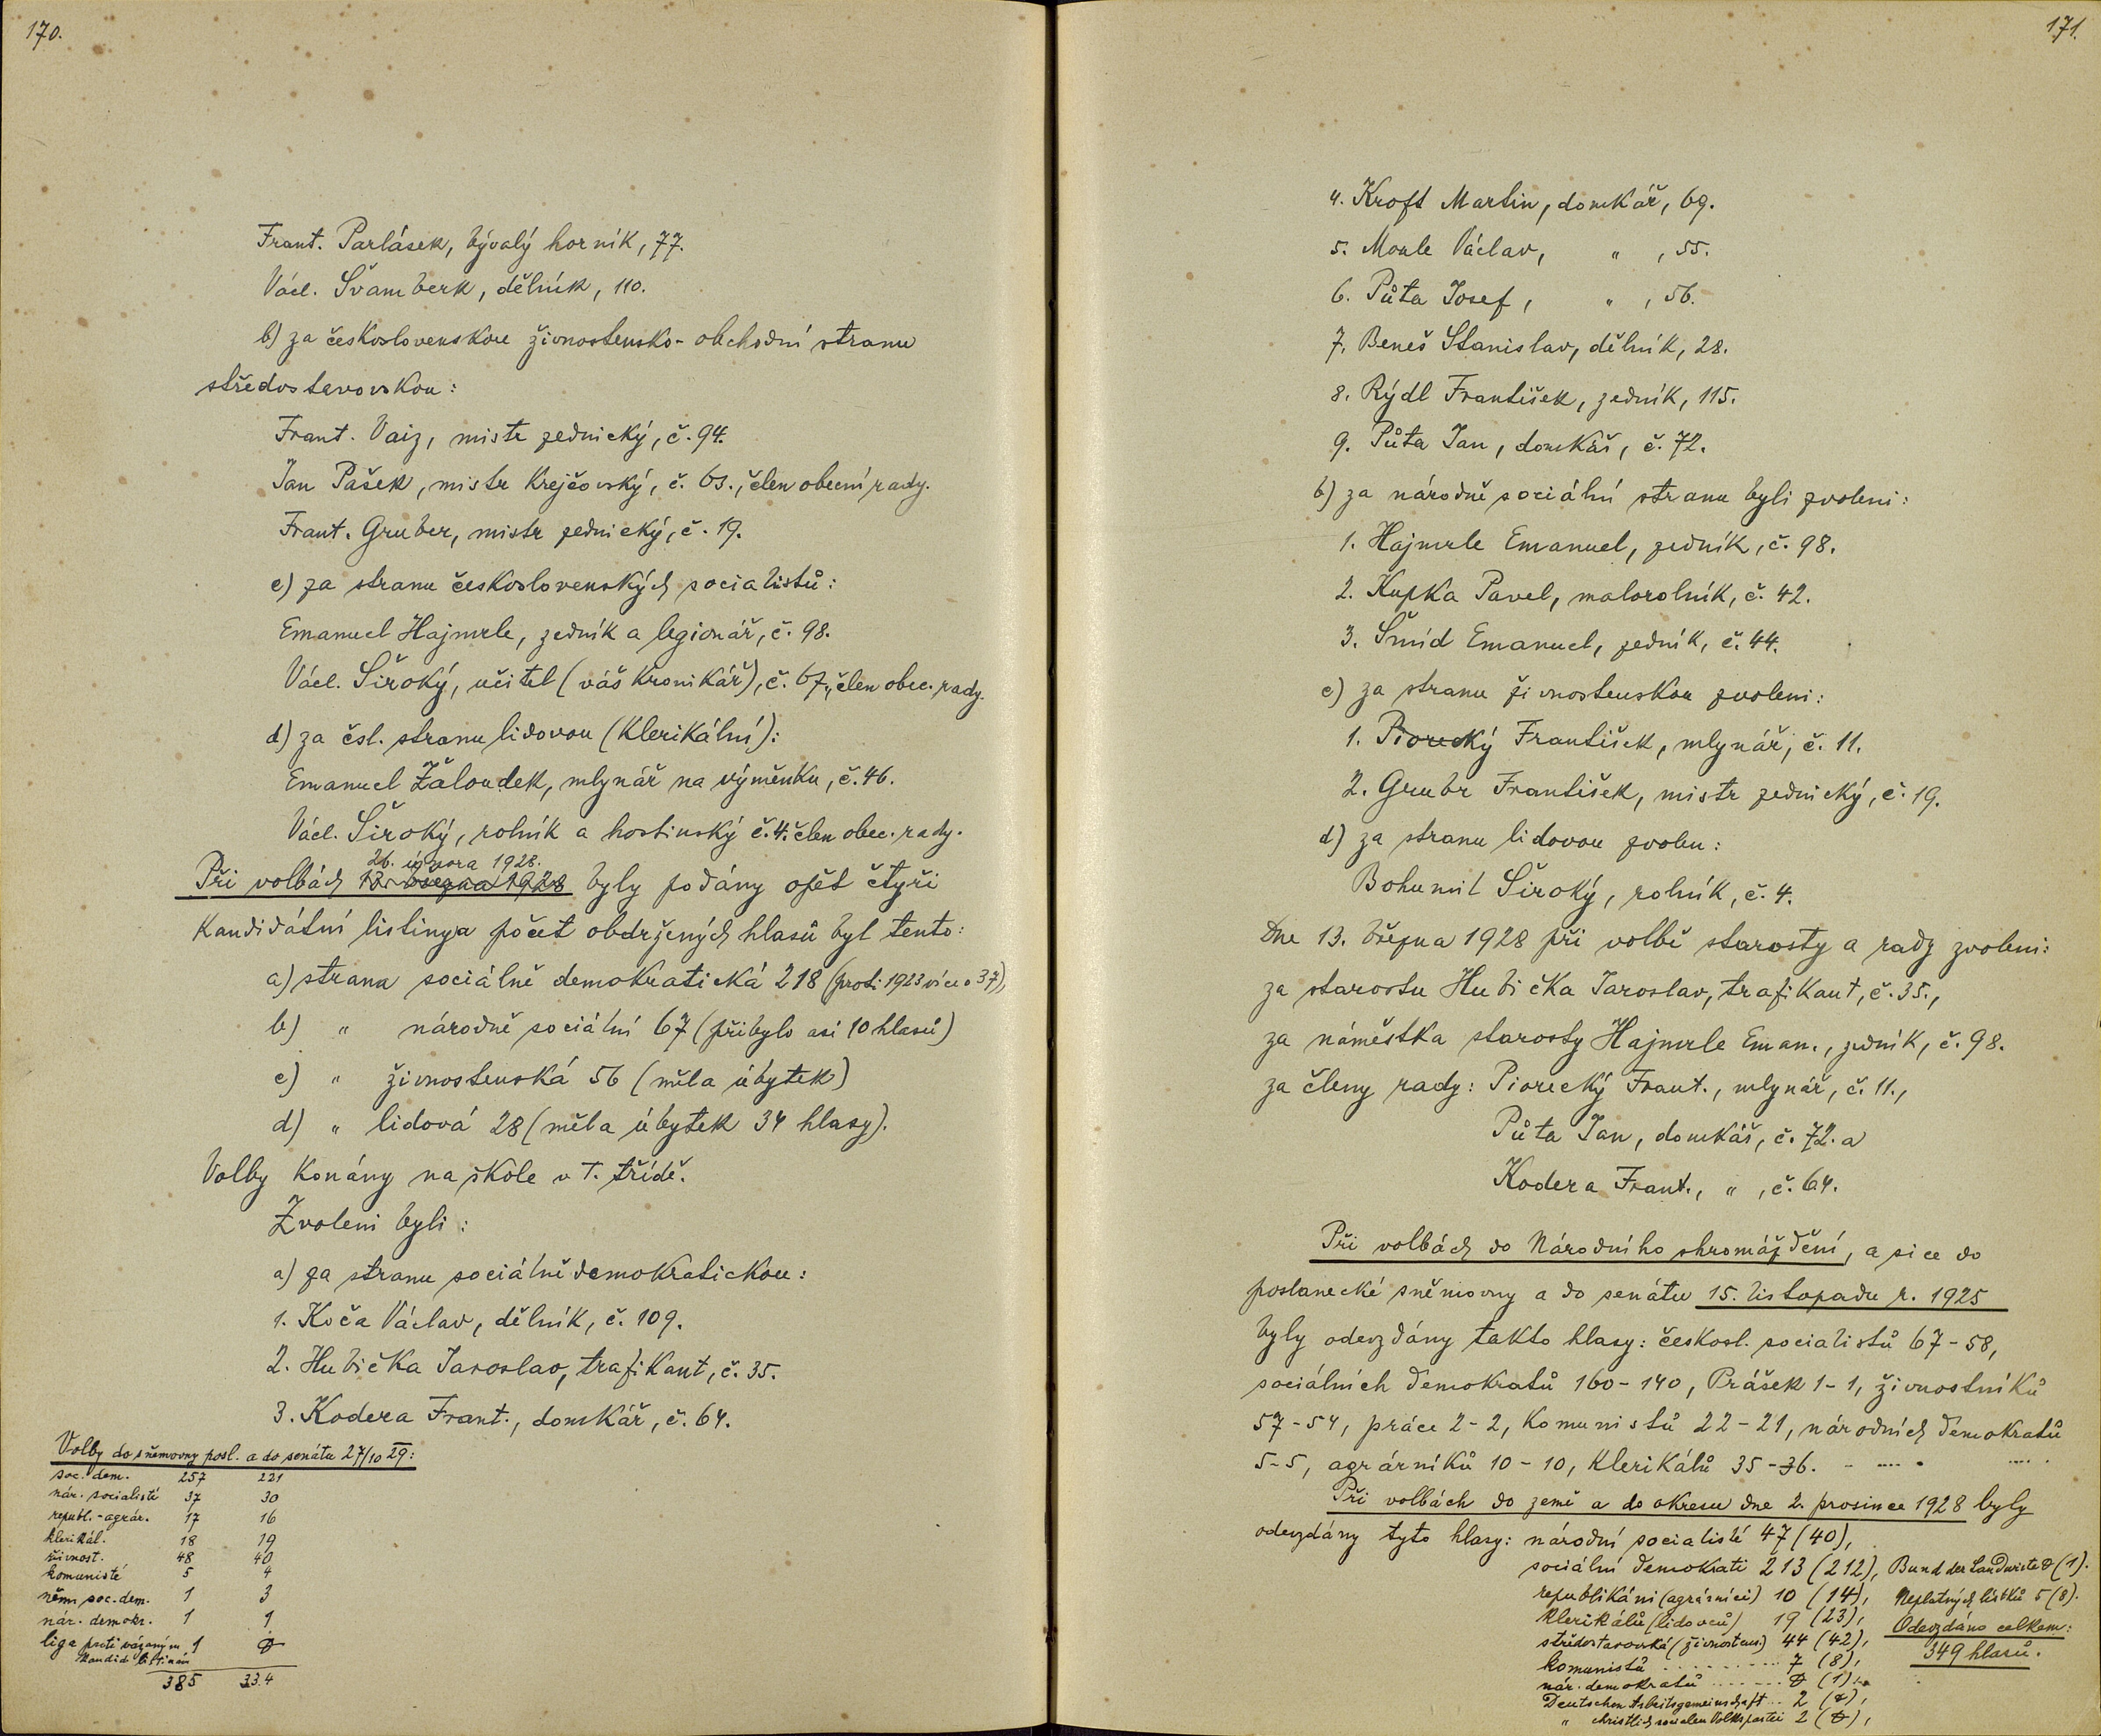 170.
Frant. Parlásek, bývalý horník, 77.
Václ. Švamberk, dělník, 110.
b) za československou živnostensko-obchodní stranu
středostavovskou:
Frant. Vaiz, mistr zednický, č. 94.
Jan Pašek, mistr krejčovský, č. 63., člen obecní rady.
Frant. Gruber, mistr zednický, č. 19.
c) za stranu československých socialistů:
Emanuel Hajmrle, zedník a legionář, č. 98.
Václ. Široký, učitel (váš kronikář), č. 67., člen obec. rady.
d) za čsl. stranu lidovou (klerikální):
Emanuel Žaloudek, mlynář na výměnku, č. 46.
Václ. Široký, rolník a hostinský č. 4. člen obec. rady.
26. února 1928.
Při volbách 13. března 1928 byly podány opět čtyři
kandidátní listiny a počet obdržených hlasů byl tento:
a) strana sociálně demokratická 218 (proti 1923 více o 37),
b) " národně sociální 67 (přibylo asi 10 hlasů)
c) " živnostenská 56 (měla úbytek)
d) " lidová 28 (měla úbytek 34 hlasy).
Volby konány na škole v I. třídě.
Zvoleni byli:
a) za stranu sociálně demokratickou:
1. Koča Václav, dělník, č. 109.
2. Hubička Jaroslav, trafikant, č. 35.
3. Kodera Frant., domkář, č. 64.
Volby do sněmovny posl. a do senátu 27/10 29:
soc. dem. 257 221
nár. socialisté 37 30
republ.-agrár. 17 16
klerikál. 18 19
živnost. 48 40
komunisté 5 4
něm. soc. dem. 1 3
nár. demokr. 1 1
liga proti vázaným 1 0
kandid. listinám
385 334
171.
4. Kroft Martin, domkář, 69.
5. Moule Václav, " , 55.
6. Půta Josef, " , 56.
7. Beneš Stanislav, dělník, 28.
8. Rýdl František, zedník, 115.
9. Půta Jan, domkář, č. 72.
b) za národně sociální stranu byli zvoleni:
1. Hajmrle Emanuel, zedník, č. 98.
2. Kupka Pavel, malorolník, č. 42.
3. Šmíd Emanuel, zedník, č. 44.
c) za stranu živnostenskou zvoleni:
1. Piorecký František, mlynář, č. 11.
2. Grubr František, mistr zednický, č. 19.
d) za stranu lidovou zvolen:
Bohumil Široký, rolník, č. 4.
Dne 13. března 1928 při volbě starosty a rady zvoleni:
za starostu Hubička Jaroslav, trafikant, č. 35.,
za náměstka starosty Hajmrle Eman., zedník, č. 98.
za členy rady: Piorecký Frant., mlynář, č. 11.,
Půta Jan, domkář, č. 72. a
Kodera Frant., " , č. 64.
Při volbách do Národního shromáždění, a sice do
poslanecké sněmovny a do senátu 15. listopadu r. 1925
byly odevzdány takto hlasy: českosl. socialistů 67-58,
sociálních demokratů 160-140, Prášek 1-1, živnostníků
57-54, práce 2-2, komunistů 22-21, národních demokratů
5-5, agrárníků 10-10, klerikálů 35-36.
Při volbách do země a do okresu dne 2. prosince 1928 byly
odevzdány tyto hlasy: národní socialisté 47 (40),
sociální demokrati 213 (212), Bund der Landwirte 0 (1).
republikáni (agrárníci) 10 (14), Neplatných lístků 5 (8).
klerikálů (lidovců) 19 (23), Odevzdáno celkem:
středostavovská (živnosten.) 44 (42), 349 hlasů.
komunistů ........ 7 (8),
nár. demokratů ....... 0 (1),
Deutschen Arbeitsgemeinschaft .. 2 (0),
" christlich socialen Volkspartei 2 (0),